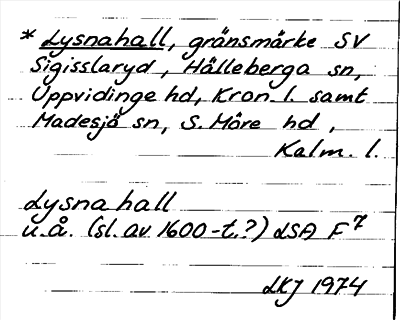 * Lysnahall, gränsmärke SV
Sigisslaryd, Hälleberga sn,
Uppvidinge hd, Kron. l. samt
Madesjö sn, S. Möre hd,
Kalm. l.
Lysnahall
u.å. (sl. av 1600-t.?) LSA F7
LKJ 1974